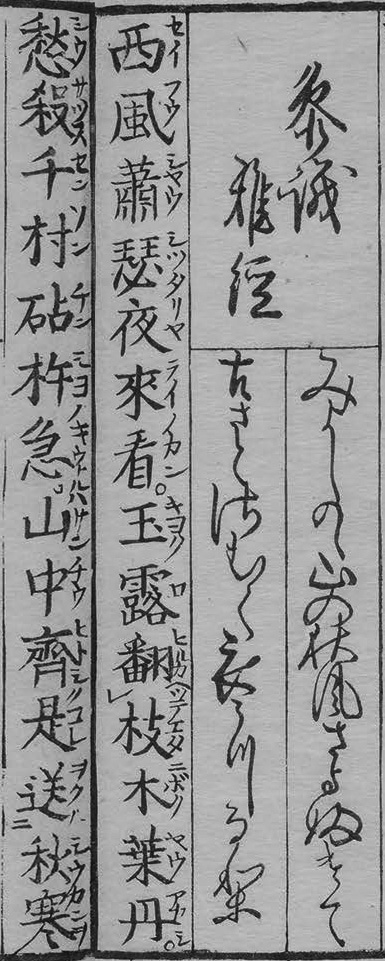 參議
雅經
みよしのゝ山の秋風さよふけて
古さとさむく衣うつなり
西風蕭瑟夜來看。玉露翻枝木葉丹。
愁殺千村砧杵急。山中齊是送秋寒